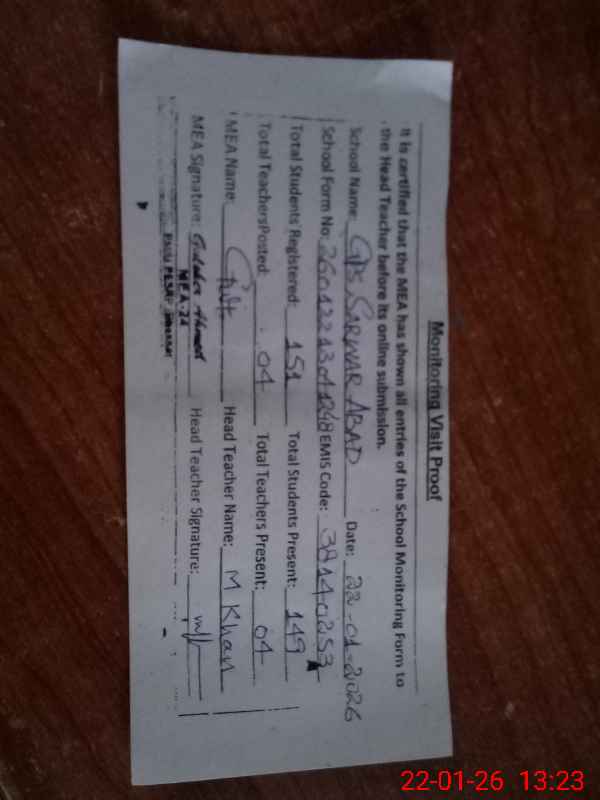 Monitoring Visit Proof
It is certified that the MEA has shown all entries of the School Monitoring Form to
the Head Teacher before its online submission.
School Name: GPS SARWAR ABAD Date: 22-01-2026
School Form No: EMIS Code:
Total Students Registered: 151 Total Students Present: 149
Total Teachers Posted: 04 Total Teachers Present: 04
MEA Name: Head Teacher Name: M Khan
MEA Signature: Ahmed Head Teacher Signature:
MEA-24
22-01-26 13:23